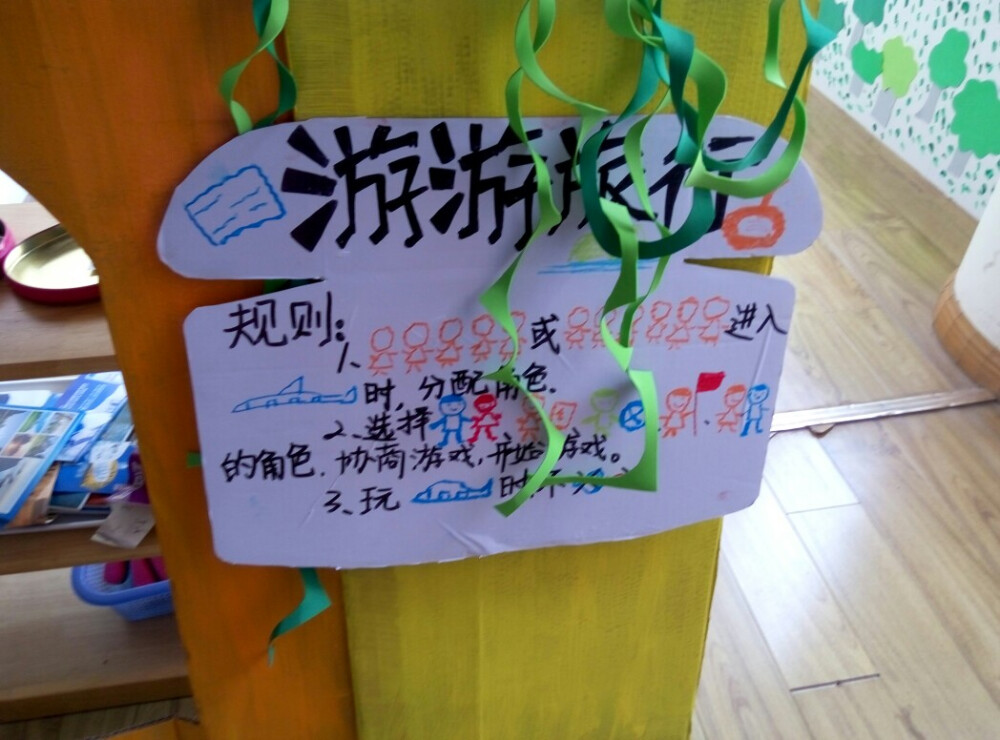 游游旅行
规则：
1、或进入
时，分配角色.
2、选择
的角色. 协商游戏，开始游戏。
3、玩时不